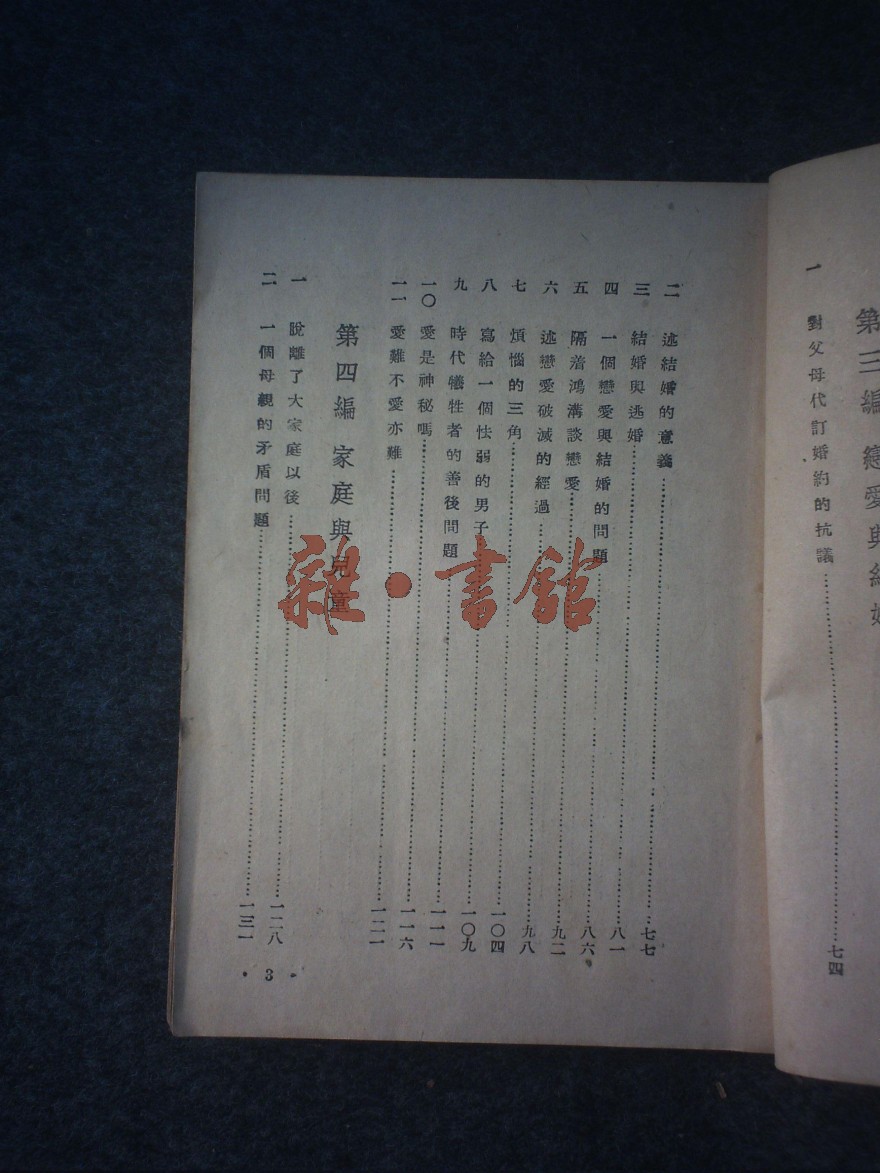 第三編 戀愛與結婚
一 對父母代訂婚約的抗議……七四
二 述結婚的意義……七七
三 結婚與逃婚……八一
四 一個戀愛與結婚的問題……八六
五 隔着鴻溝談戀愛……九二
六 述戀愛破滅的經過……九八
七 煩惱的三角……一〇四
八 寫給一個怯弱的男子……一〇九
九 時代犧牲者的善後問題……一一一
一〇 愛是神秘嗎……一一六
一一 愛難不愛亦難……一二一
第四編 家庭與兒童
一 脫離了大家庭以後……一二八
二 一個母親的矛盾問題……一三一
· 3 ·
雜·書館